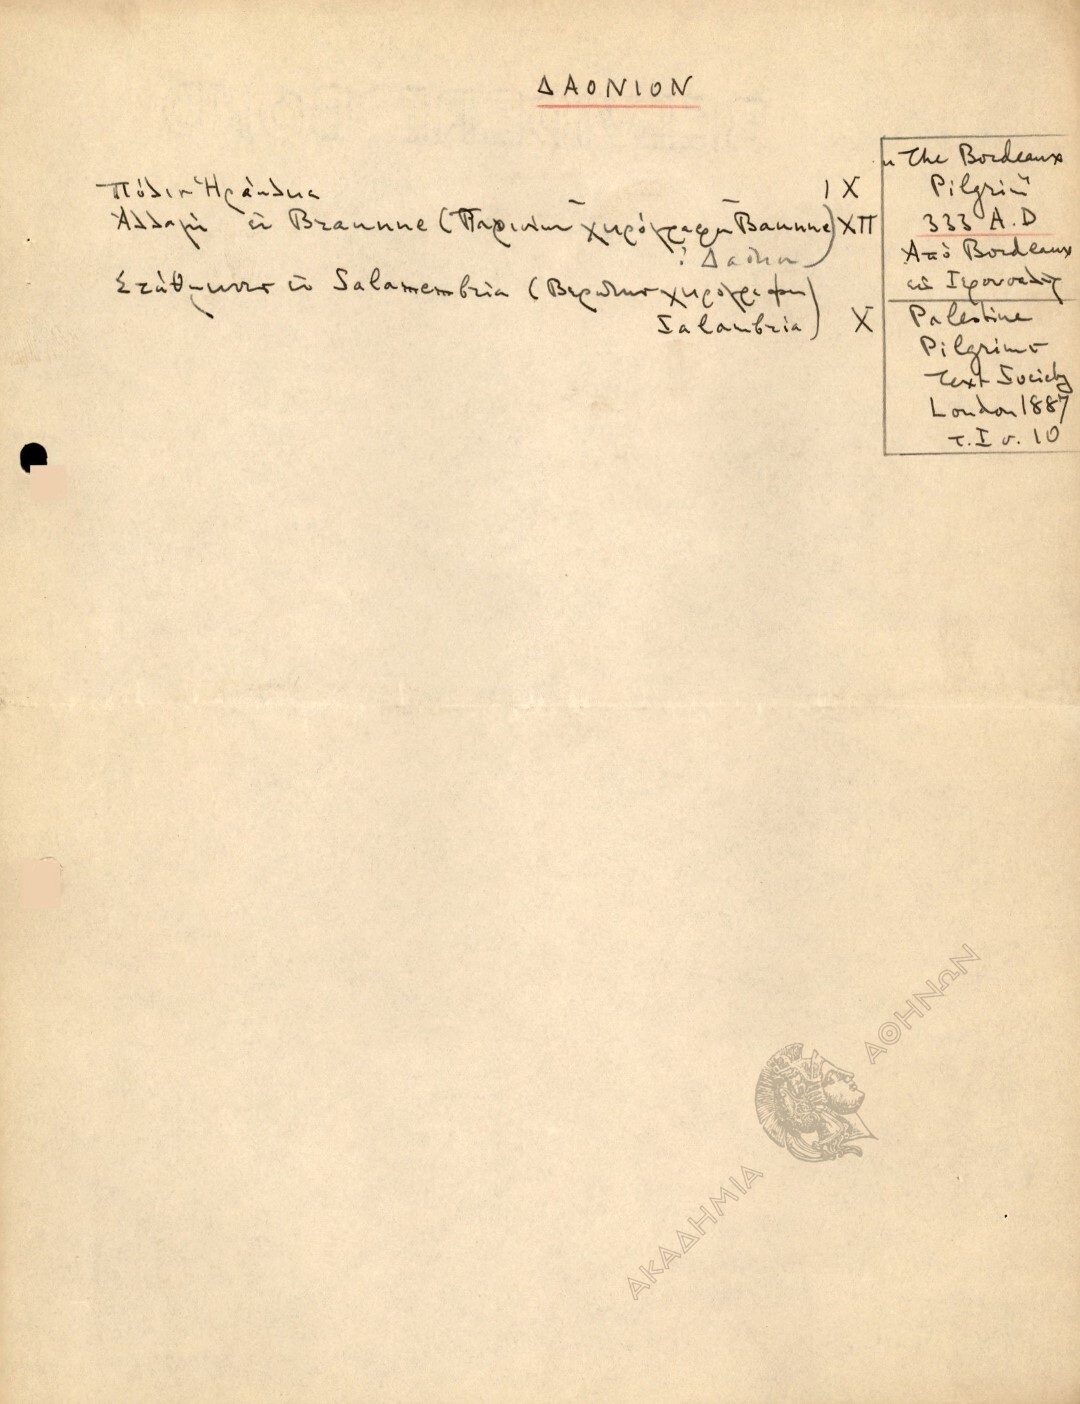 ΔΑΟΝΙΟΝ
Πόλις Ἡράκλεια IX
Αλλαγή εἰς Braunne (Παρισίων χειρόγραφον Baunne) XII
Δαόνιον
Στάθμευσις εἰς Salamembria (Βερώνης χειρόγραφον
Salambria) X
The Bordeaux
Pilgrim
333 A.D
Από Bordeaux
εἰς Ιερουσαλήμ
Palestine
Pilgrims
Text Society
London 1887
τ. I σ. 10
ΑΚΑΔΗΜΙΑ ΑΘΗΝΩΝ